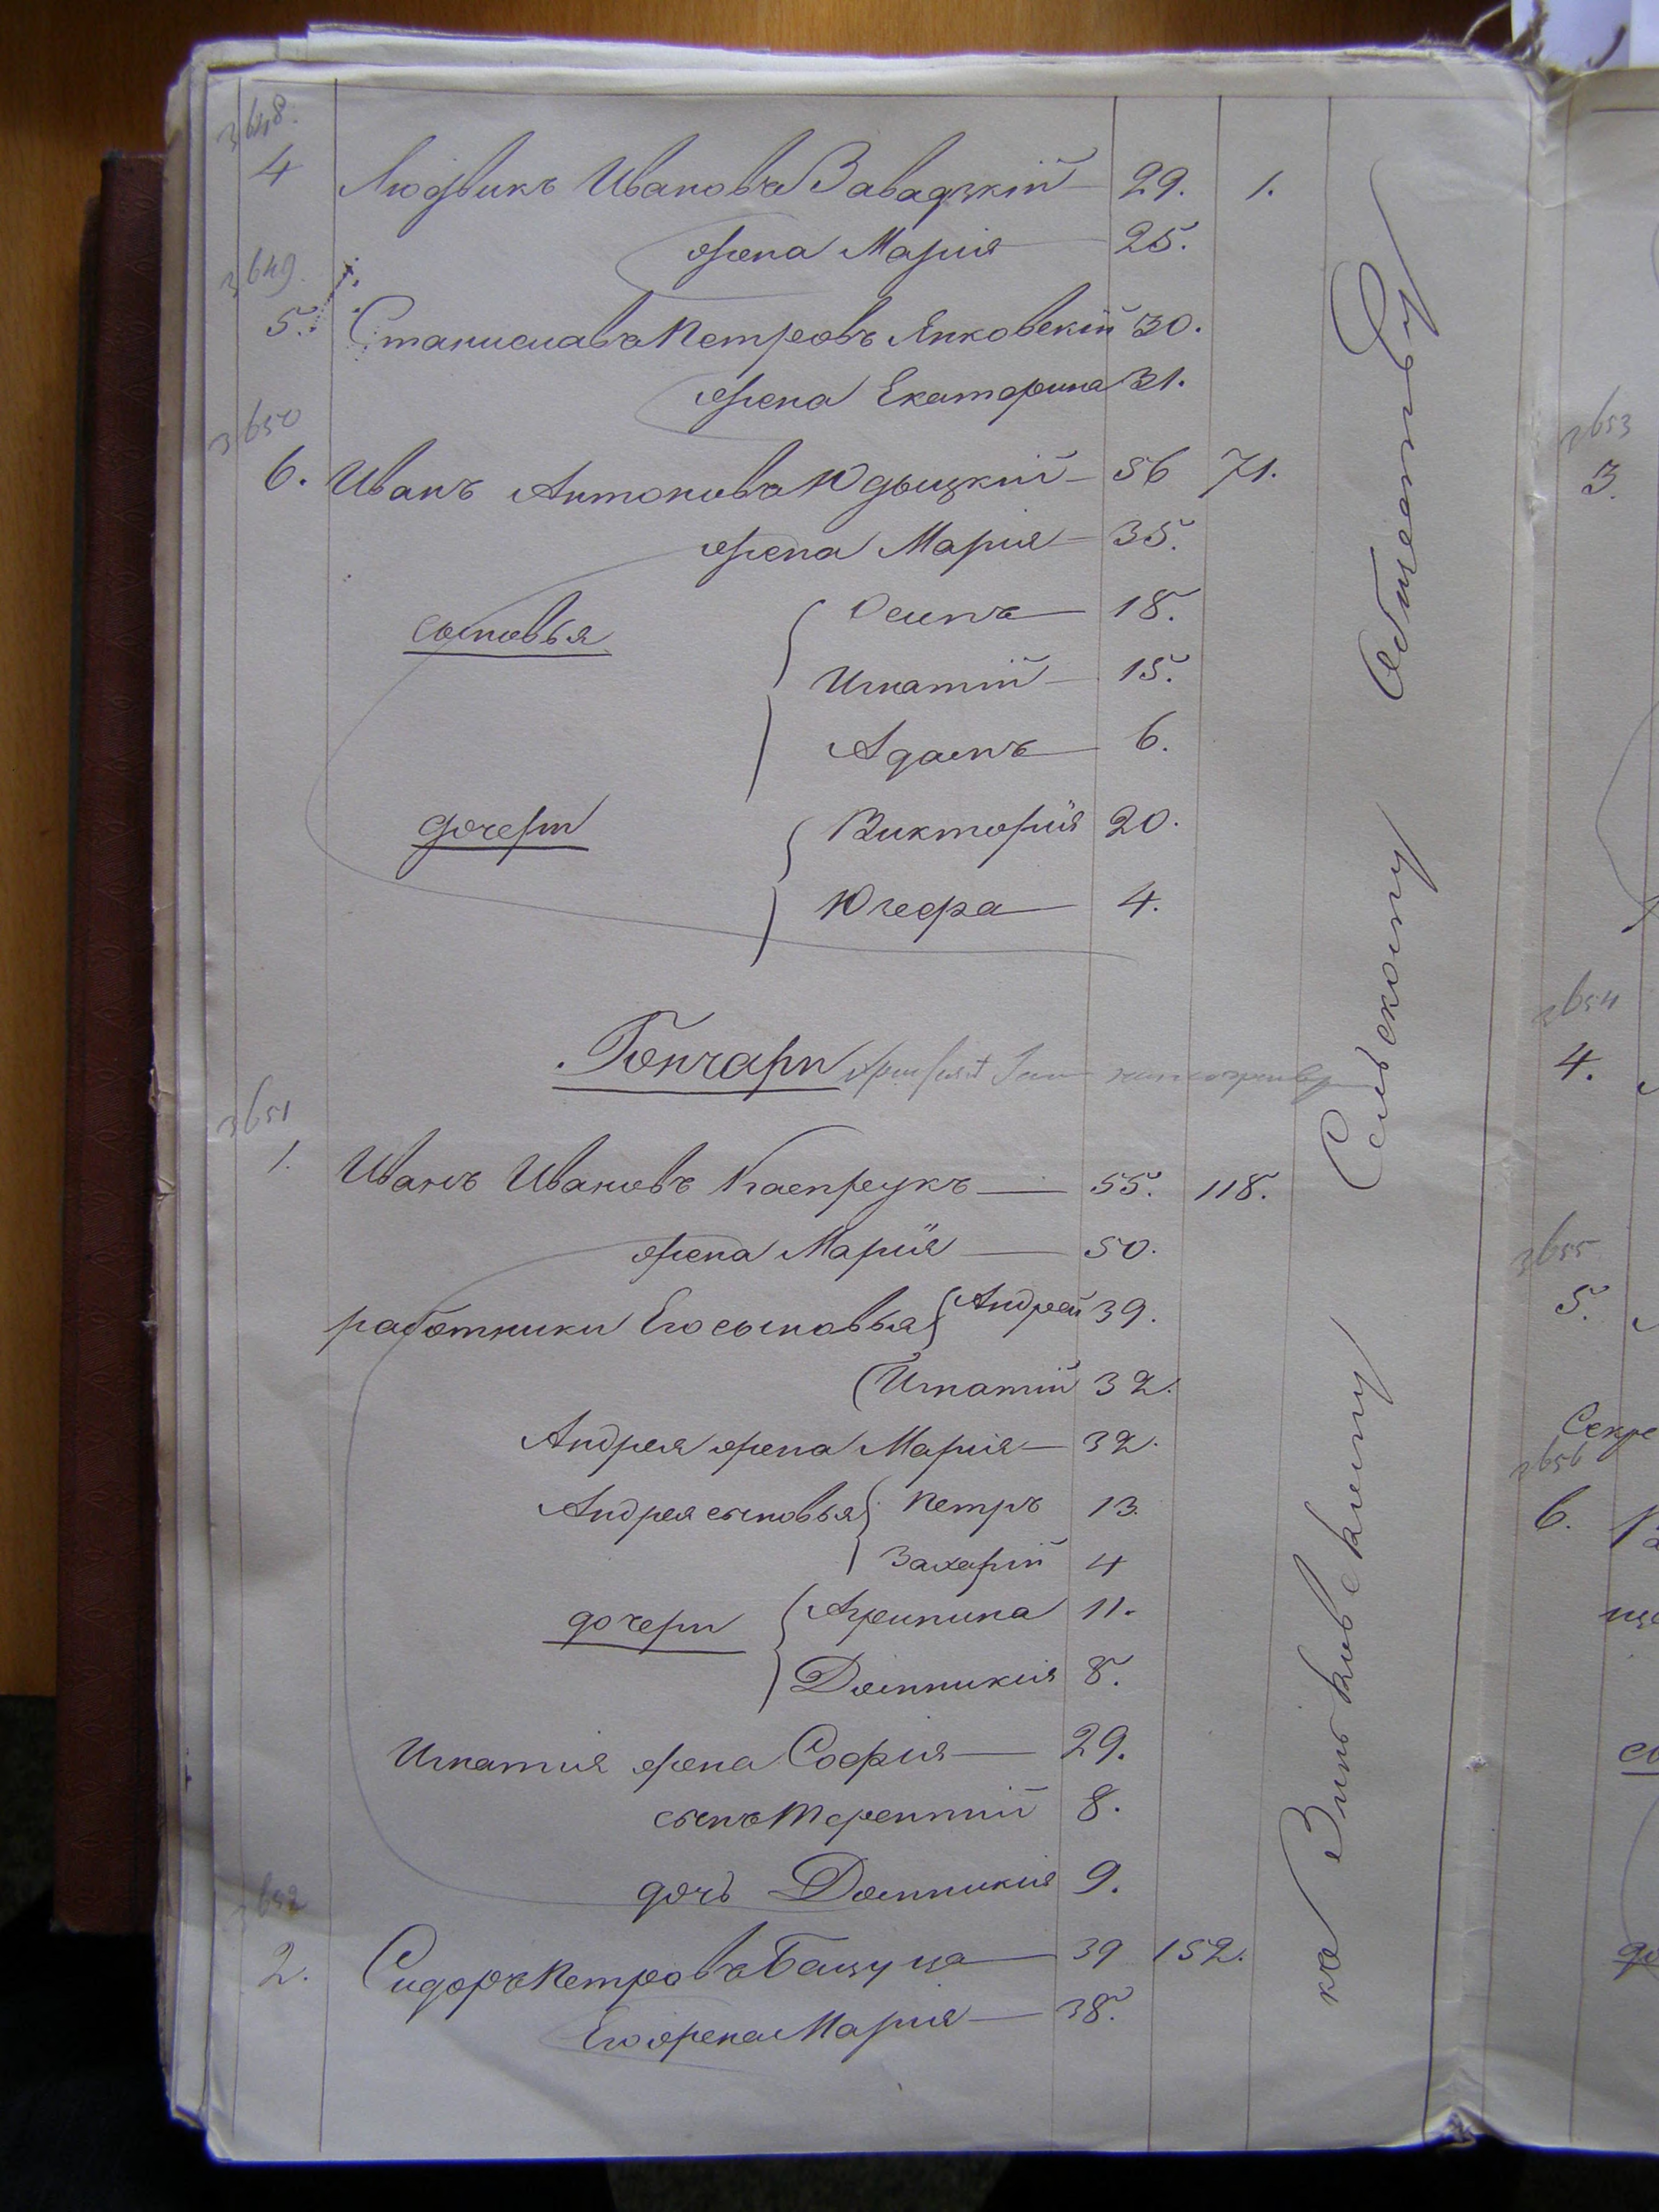 3648.
4 Людвикъ Ивановъ Завадзкій 29. 1.
жена Марія 25.
3649.
5. Станиславъ Петровъ Янковскій 30.
жена Екатерина 31.
3650
6. Иванъ Антоновъ Юдыцкій 56 71.
жена Марія 35.
сыновья Осипъ 18.
Игнатій 15.
Адамъ 6.
дочери Викторія 20.
Юзефа 4.
Гончари
3651
1. Иванъ Ивановъ Каспрукъ 55. 118.
жена Марія 50.
работники Его сыновья Андрей 39.
Игнатій 32.
Андрея жена Марія 32.
Андрея сыновья Петръ 13.
Захарій 4
дочери Агрипина 11.
Домникія 8.
Игнатія жена Софія 29.
сынъ Терентій 8.
дочь Домникія 9.
3652
2. Сидоръ Петровъ Бацуца 39 152.
Его жена Марія 38.
къ Зиньковскому Сельскому Обществу
3653
3.
3654
4.
3655
5.
3656
6.